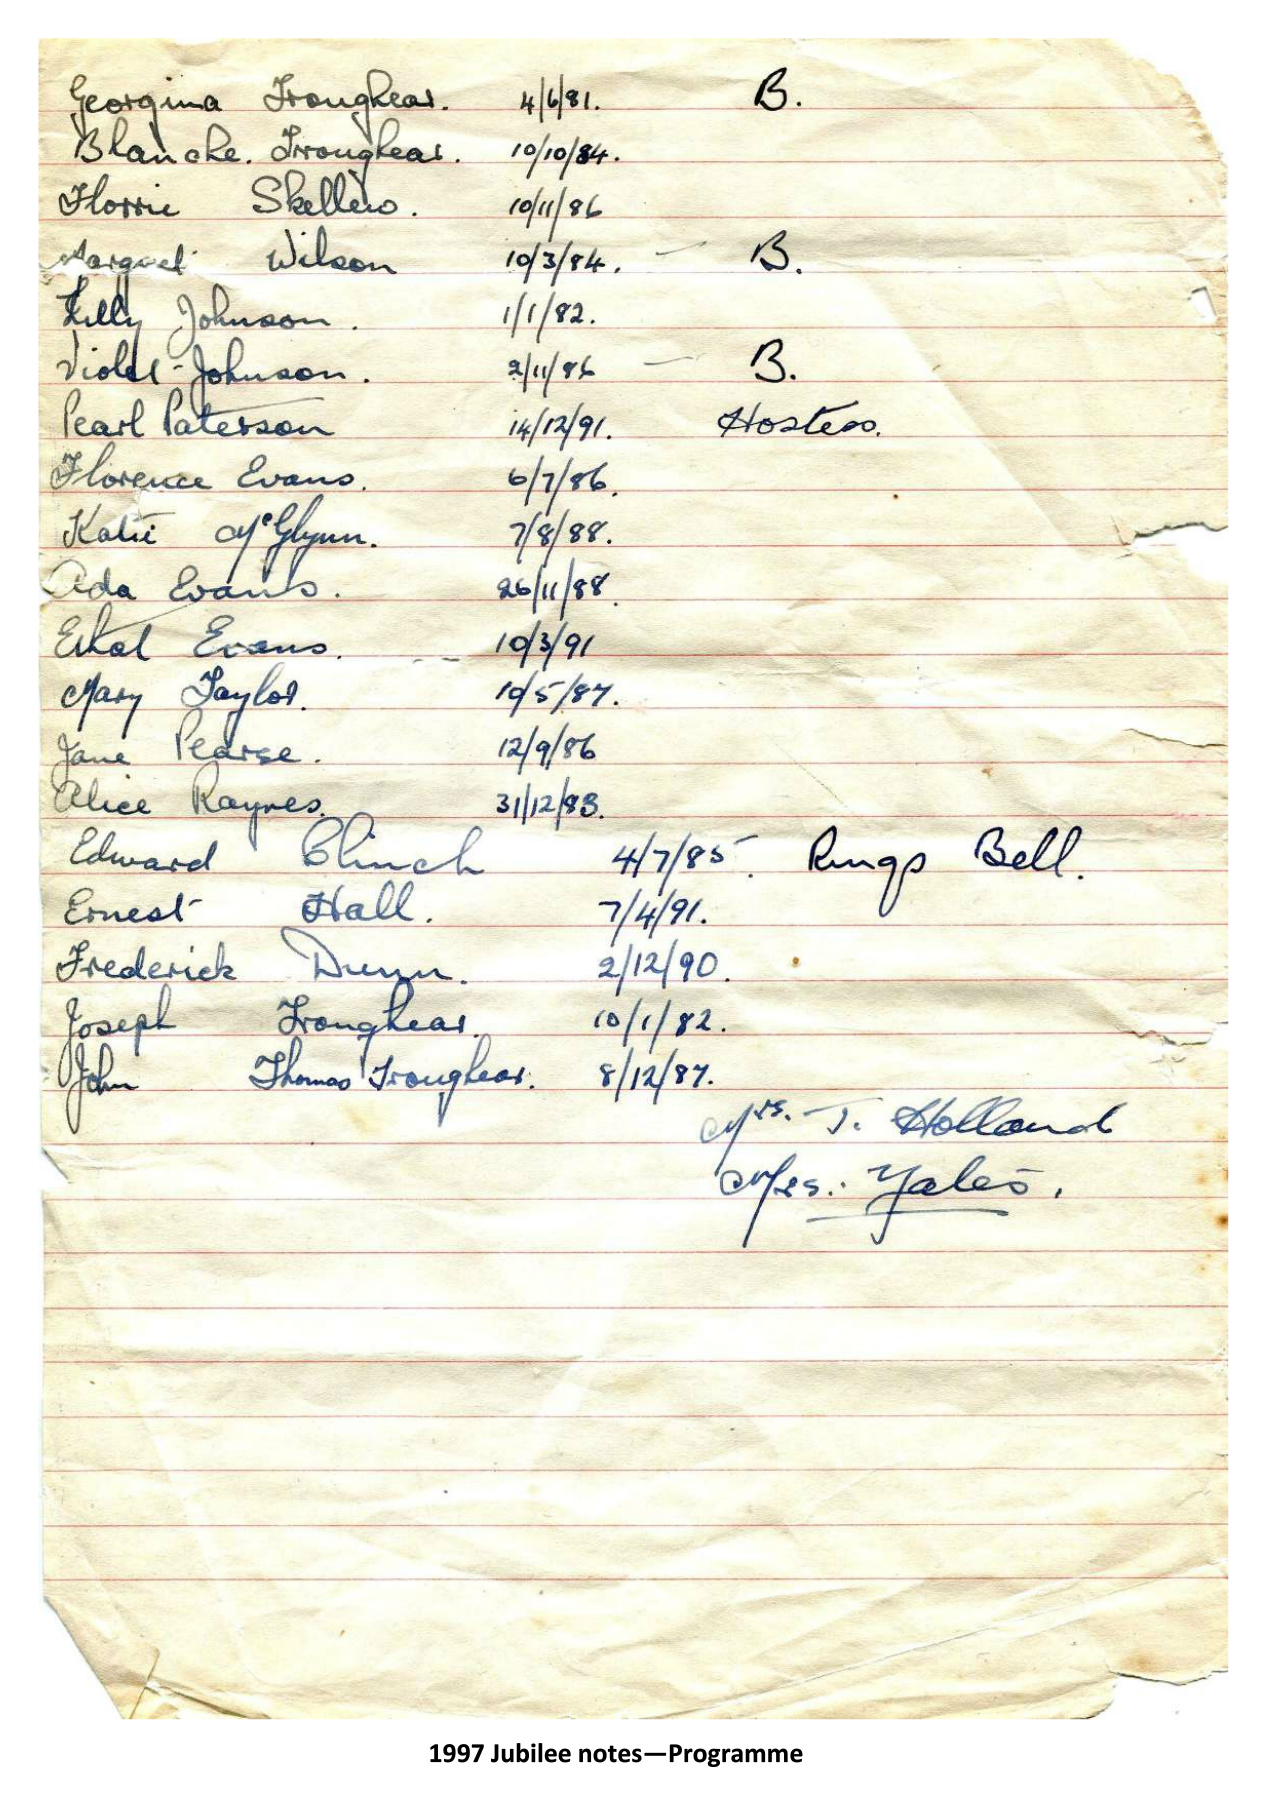 Georgina Troughear. 4/6/81. B.
Blanche. Troughear. 10/10/84.
Florrie Skellern. 10/11/86
Margret Wilson 10/3/84. — B.
Lilly Johnson. 1/1/82.
Violet Johnson. 2/11/86 — B.
Pearl Paterson 14/12/91. Hostess.
Florence Evans. 6/7/86.
Katie McGlynn. 7/8/88.
Ada Evans. 26/11/88.
Ethel Evans. 10/3/91
Mary Taylor. 10/5/87.
Jane Pearse. 12/9/86
Alice Raynes. 31/12/83.
Edward Clinch 4/7/85. Rings Bell.
Ernest Hall. 7/4/91.
Frederick Dunn. 2/12/90.
Joseph Troughear. 10/1/82.
John Thomas Troughear. 8/12/87.
Mrs. T. Holland
Mrs. Yates.
1997 Jubilee notes—Programme